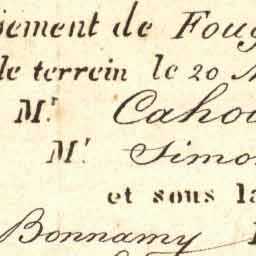 sement de Foug
le terrein le 20 M
Mr. Cahou
Mr. Simo
et sous la
Bonnamy